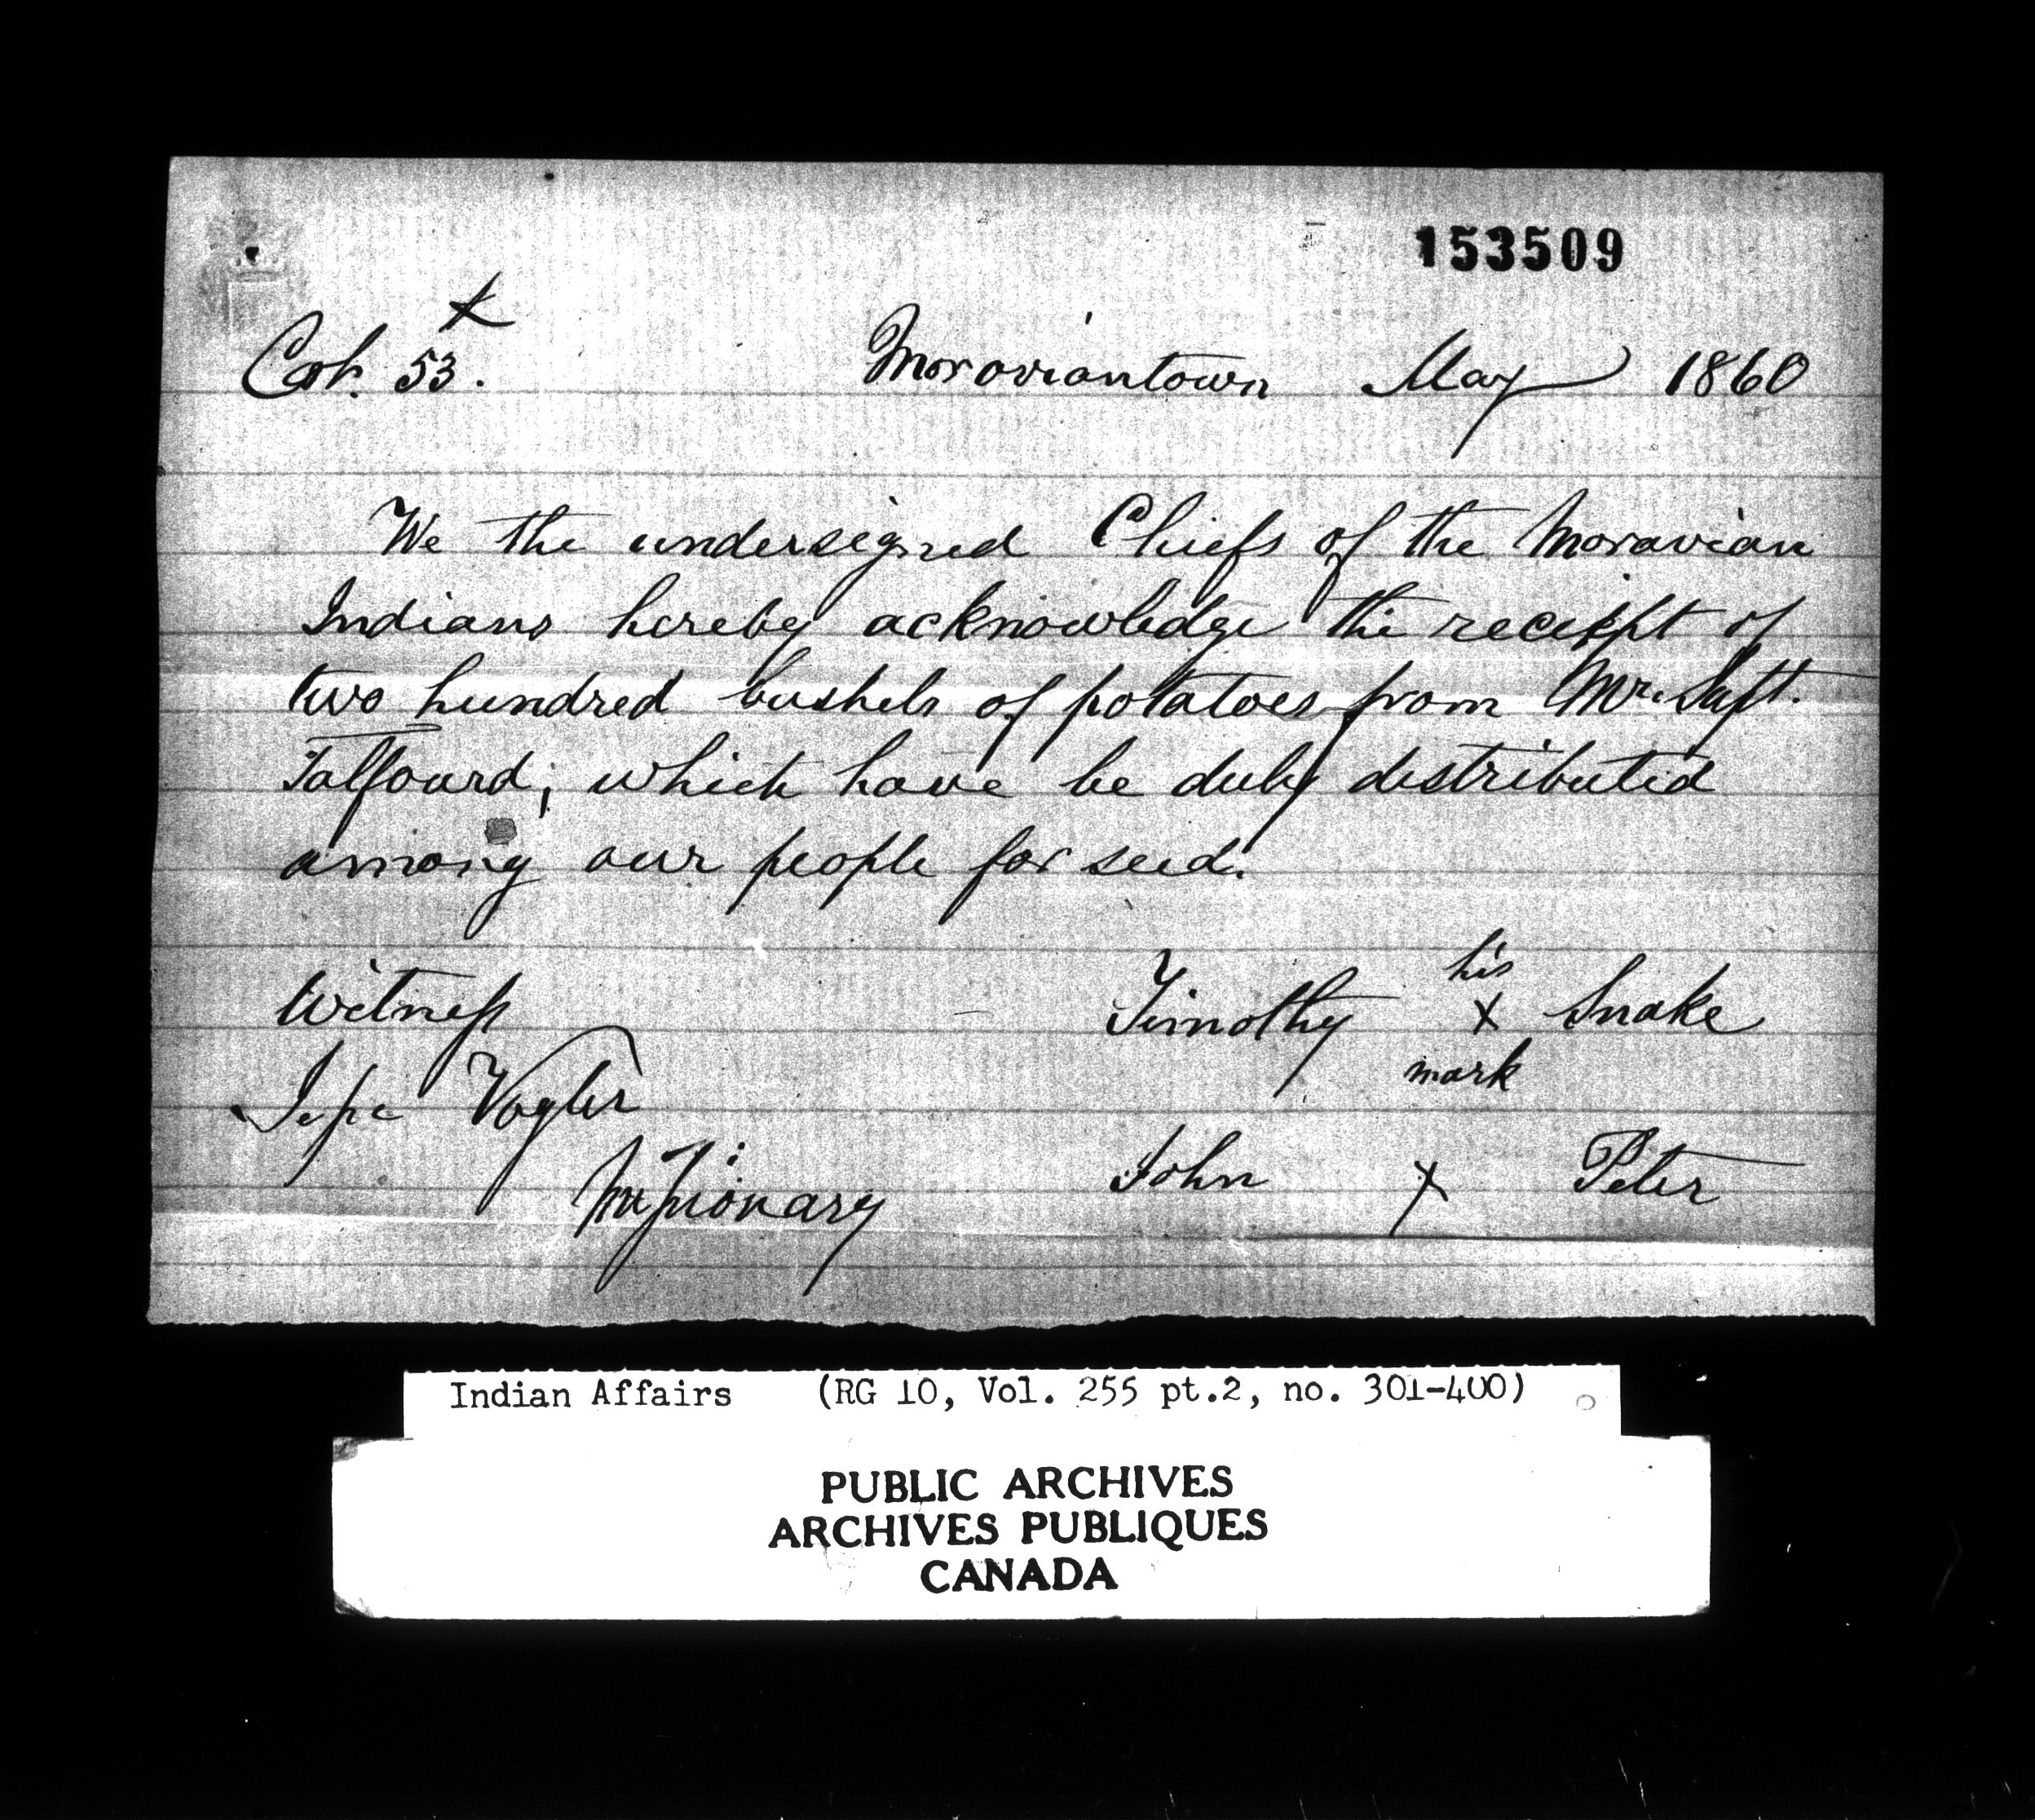 153509
x
53.
Moraviantown May 1860
We the undersigned Chiefs of the Moravian
Indians hereby acknowledge the receipt of
two hundred bushels of potatoes from Mr. Supt.
Talfourd, which have be duly distributed
among our people for seed.
his
Witness Timothy x Snake
mark
Jesse Vogler
Missionary John x Peter
Indian Affairs (RG 10, Vol. 255 pt.2, no. 301-400)
PUBLIC ARCHIVES
ARCHIVES PUBLIQUES
CANADA